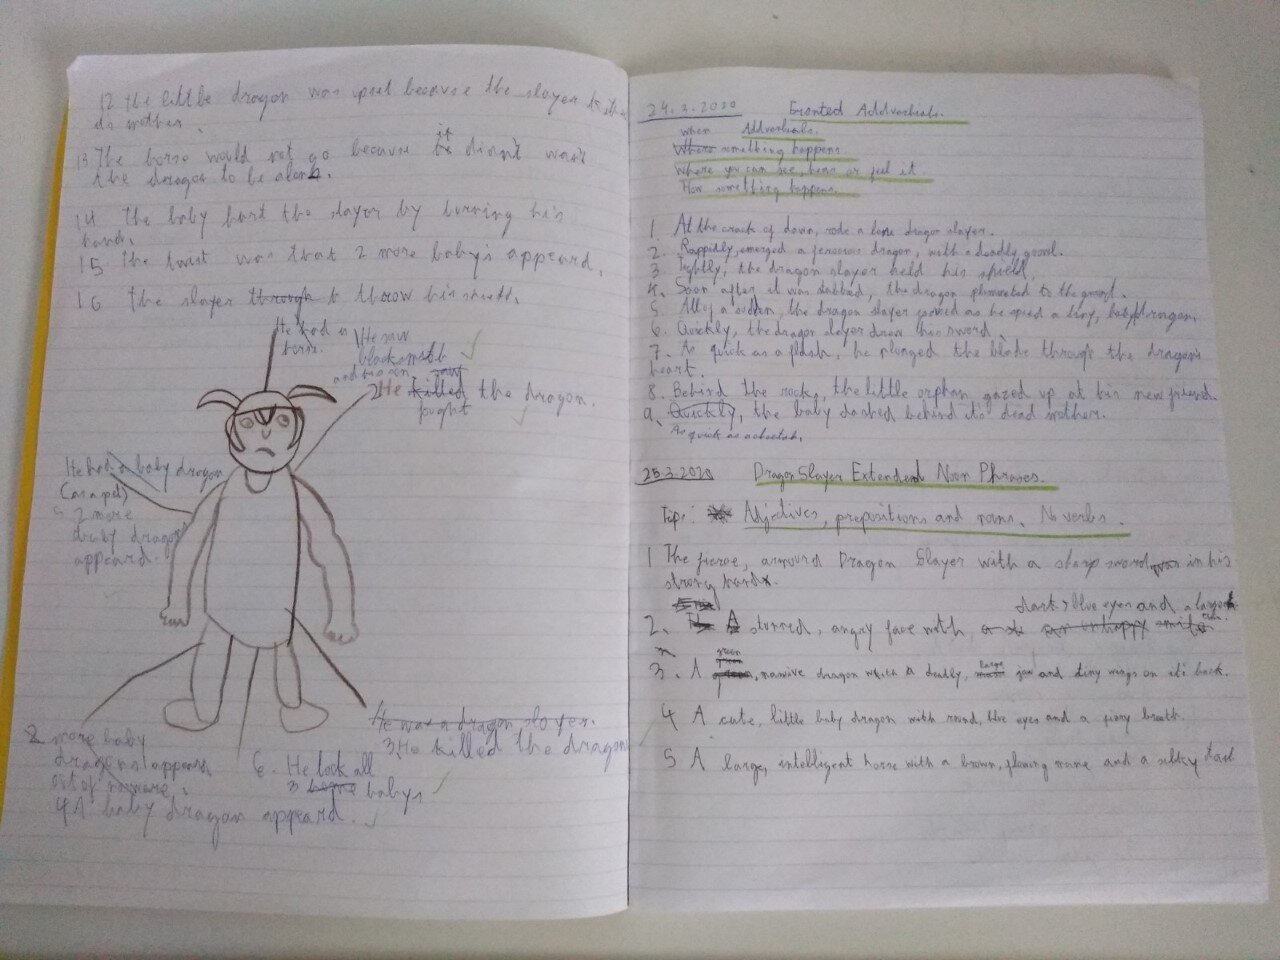 12 The little dragon was upset because the slayer
mother.
13 The horse would not go because it didn't want
the dragon to be alone.
14 The baby hurt the slayer by burning his
hand.
15 The twist was that 2 more baby's appeard.
16 The slayer through to throw his
He had a
horn.
1 He saw
blacksmith
and his son
2 He killed saw the dragon.
fought
He had a baby dragon
(as a pet)
5 2 more
baby dragons
appeard.
He was a dragon slayer.
3. He killed the dragon
2 more baby
dragons appeard
out of nowhere.
4 A baby dragon appeard.
6. He took all
3 baby's
24.3.2020 Fronted Addverbials.
Addverbials.
when
Where something happens
Where you can see, hear or feel it
How something happens.
1. At the crack of dawn, rode a lone dragon slayer.
2. Rappidly, emerged a ferocious dragon, with a deadly growl.
3. Tightly, the dragon slayer held his shield.
4. Soon after it was stabbed, the dragon plumeted to the ground.
5. All of a sudden, the dragon slayer as he spied a tiny, baby dragon.
6. Quickly, the dragon slayer drew his sword.
7. As quick as a flash, he plunged the blade through the dragon's
heart.
8. Behind the rock, the little orphan gazed up at his new friend.
9. Quickly, the baby dashed behind its dead mother.
As quick as a cheetah,
25.3.2020 Dragon Slayer Extended Noun Phrases.
Tip: Adjectives, prepositions and nouns. No verbs.
1 The fierce, armourd Dragon Slayer with a sharp sword in his
strong hand.
dark, blue eyes and a large
2. A angry face with, an unhappy smile
green
3. A massive dragon with a deadly, large jaw and tiny wings on it's back.
4 A cute, little baby dragon with round, blue eyes and a firey breath.
5 A large, intelligent horse with a brown, flowing mane and a silky tail